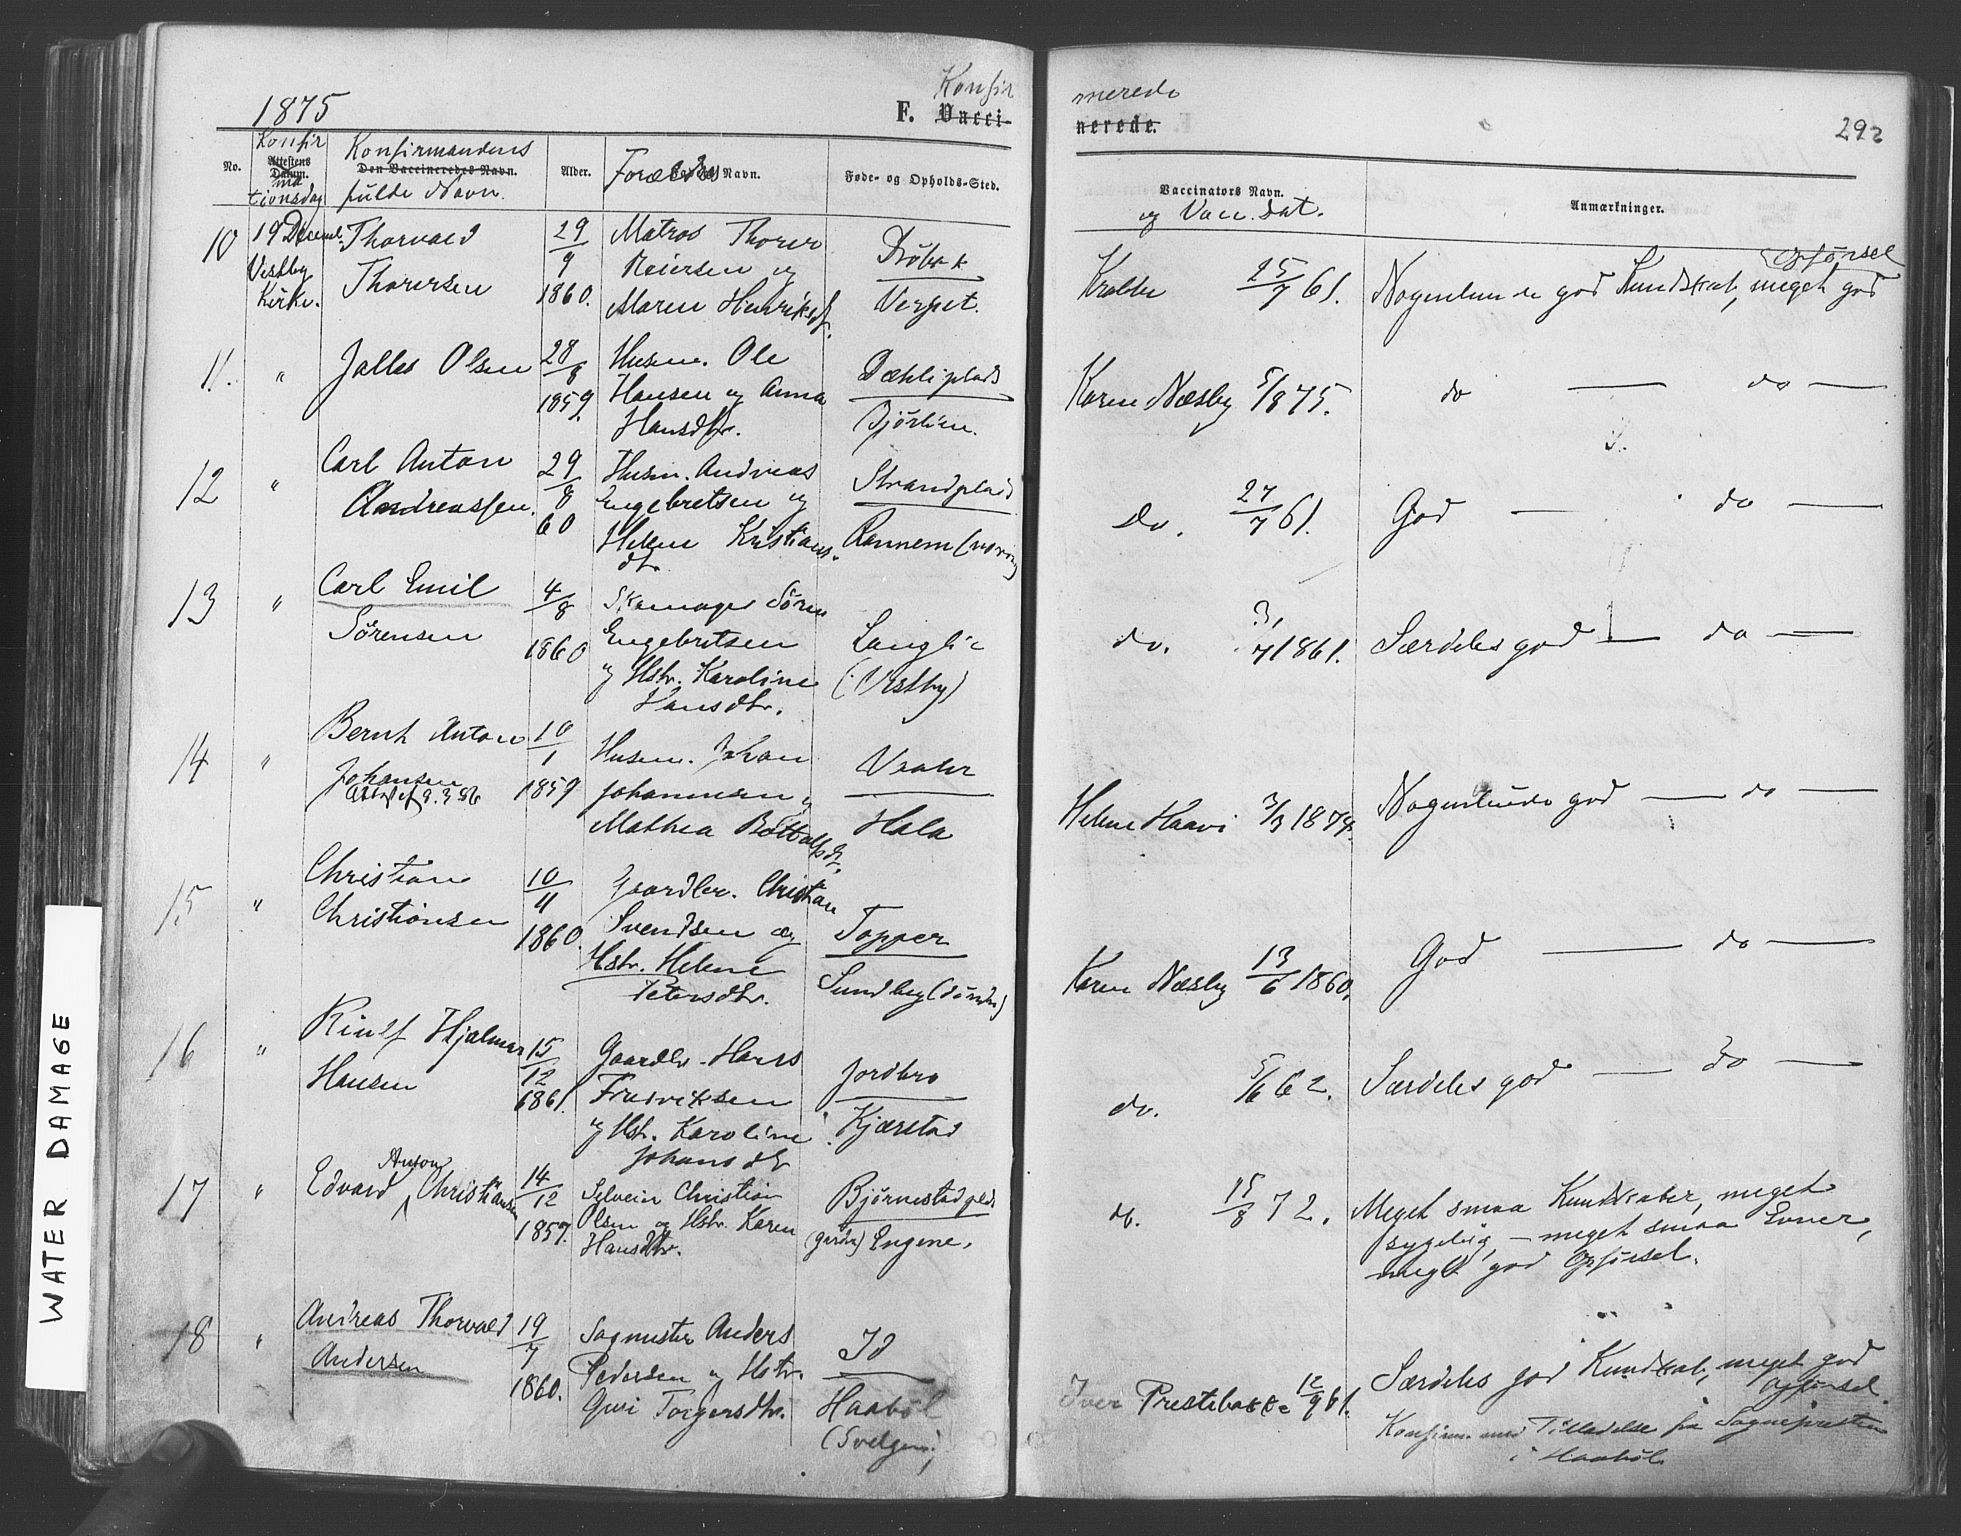 1875
Konfir
F. Vacci-
merede
nerede.
292
No.
Konfir
Attestens
Datum.
ma
tionsdag
Konfirmandens
Den Vaccineredes Navn.
fulde Navn.
Alder.
Forældres
Navn.
Føde- og Opholds-Sted.
Vaccinators Navn.
og Vacc. Dat.
Anmærkninger.
10
19 Decembr.
Vestby
Kirke.
Thorvald
Thorersen
29
9
1860.
Matros Thorer
Reiersen og
Maren Henriksdtr.
Drøbak
Verpet.
Krabbe
25/7 61.
Nogenlunde god Kundskab, meget god
Opførsel
11.
"
Jalles Olsen
28
8
1859.
Husm. Ole
Hansen og Anna
Hansdtr.
Dæhliplads
Bjørlien.
Karen Næsby 5/8 75.
do — do —
12
"
Carl Anton
Andreassen.
29
8
60
Husm. Andreas
Engebretsen og
Helene Kristians
dtr.
Strandplads
Rannem
Do.
27/7 61.
God — do —
13
"
Carl Emil
Sørensen
4
8
1860
Skomager Søren
Engebretsen
og Hstr. Karoline
Hansdtr.
Langli
(Vestby)
do.
3/7 1861.
Særdeles god — do —
14
"
Bernt Anton
Johansen
10
1
1859
Husm. Johan
Johannesen og
Mathea Bottolfsdtr.
Vaaler
Hala
Helene Haavi 3/3 1874.
Nogenlunde god — do —
15
"
Christian
Christiansen
10
11
1860.
Gaardbr. Christian
Svendsen og
Hstr. Helene
Petersdtr.
Topper
Sundby (søndre)
Karen Næsby 13/6 1860.
God — do —
16
"
Rinlf Hjalmar
Hansen
15
12
1861.
Gaardbr. Hans
Fredriksen
og Hstr. Karoline
Johansdtr
Jordbro
Kjærstad
do.
5/6 62.
Særdeles god — do —
17
"
Anton
Edvard Christiansen
14
12
1857.
Selveier Christian
Olsen og Hstr. Karen
Hansdtr.
Bjørnestadplds
Engene.
do.
15/8 72.
Meget smaa Kundskaber, meget
sygelig, — meget smaa Evner,
meget god Opførsel.
18
"
Andreas Thorvald
Andersen
19
7
1860.
Sagmester Anders
Pedersen og Hstr.
Guri Torgersdtr.
Id
Haabøl
Iver Prestebakke 12/9 61.
Særdeles god Kundskab, meget god
Opførsel
Konfirm. med Tilladelse fra Sognepresten
i Haabøl
WATER DAMAGE